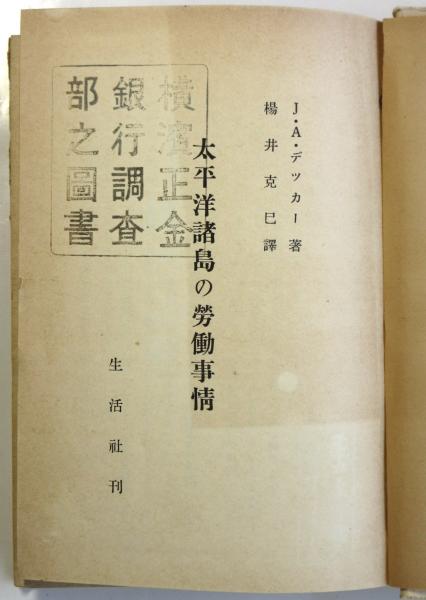 J・A・デッカー著
楊井克巳譯
太平洋諸島の勞働事情
生活社刊
橫濱正金
銀行調査
部之圖書